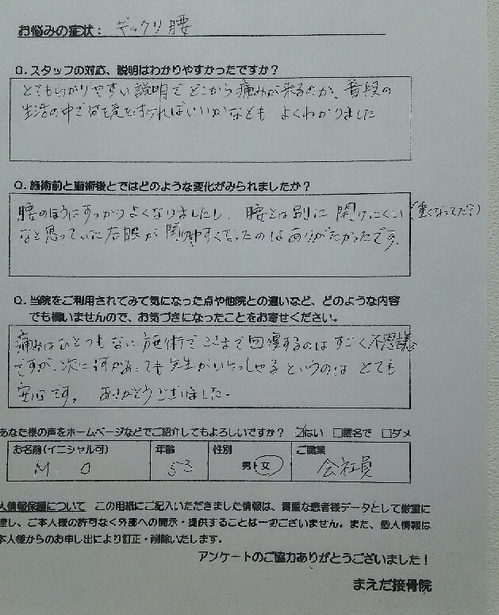 お悩みの症状： ギックリ腰
Q. スタッフの対応、説明はわかりやすかったですか？
とてもわかりやすい説明でどこから痛みが来るのか、普段の
生活の中で何を気を付ければいいかなども よくわかりました
Q. 施術前と施術後とではどのような変化がみられましたか？
腰のほうはすっかりよくなりましたし、腰とは別に開けにくい(重くなってた?)
なと思っていた右眼が開けやすくなったのはありがたかったです。
Q. 当院をご利用されてみて気になった点や他院との違いなど、どのような内容
でも構いませんので、お気づきになったことをお寄せください。
痛みはひとつもない施術でここまで回復するのはすごく不思議
ですが、次に何かあっても先生がいらっしゃるというのはとても
安心です。 ありがとうございました。
あなた様の声をホームページなどでご紹介してもよろしいですか？ ☑はい □匿名で □ダメ
お名前(イニシャル可) 年齢 性別 ご職業
M O 53 男・女 会社員
人情報保護について この用紙にご記入いただきました情報は、貴重な患者様データとして厳重に
理し、ご本人様の許可なく外部への開示・提供することは一切ございません。また、個人情報は
本人様からのお申し出により訂正・削除いたします。
アンケートのご協力ありがとうございました！
まえだ接骨院